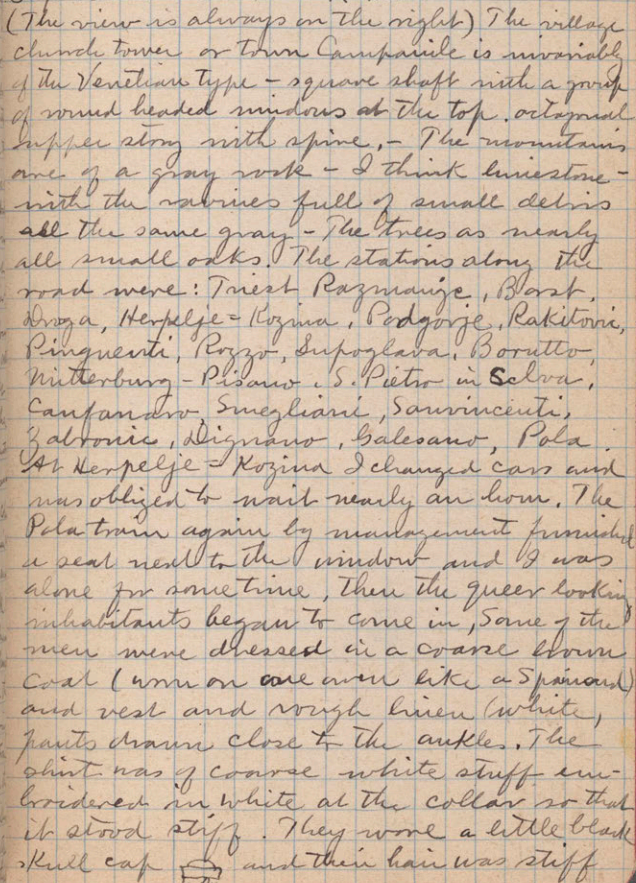 (The view is always on the right) The village
church tower or town Campanile is invariably
of the Venetian type – square shaft with a group
of round headed windows at the top. octagonal
upper story with spire. – The mountains
are of a gray rock – I think limestone –
with the ravines full of small debris
all the same gray – The trees as nearly
all small oaks. The stations along the
road were: Triest Razmanje, Borst,
Draga, Herpelje = Kozina, Podgorje, Rakitovic,
Pinguenti, Rozzo, Lupoglava, Borutto,
Mitterburg – Pisano, S. Pietro in Selva,
Canfanaro, Smogliani, Sanvincenti,
Zabronic, Dignano, Galesano, Pola
At Herpelje = Kozina I changed cars and
was obliged to wait nearly an hour. The
Pola train again by management furnished
a seat next to the window and I was
alone for some time, then the queer looking
inhabitants began to come in, Some of the
men were dressed in a coarse brown
coat (worn on one arm like a Spaniard)
and vest and rough linen (white,
pants drawn close to the ankles. The
shirt was of coarse white stuff em-
broidered in white at the collar so that
it stood stiff. They wore a little black
skull cap and their hair was stiff